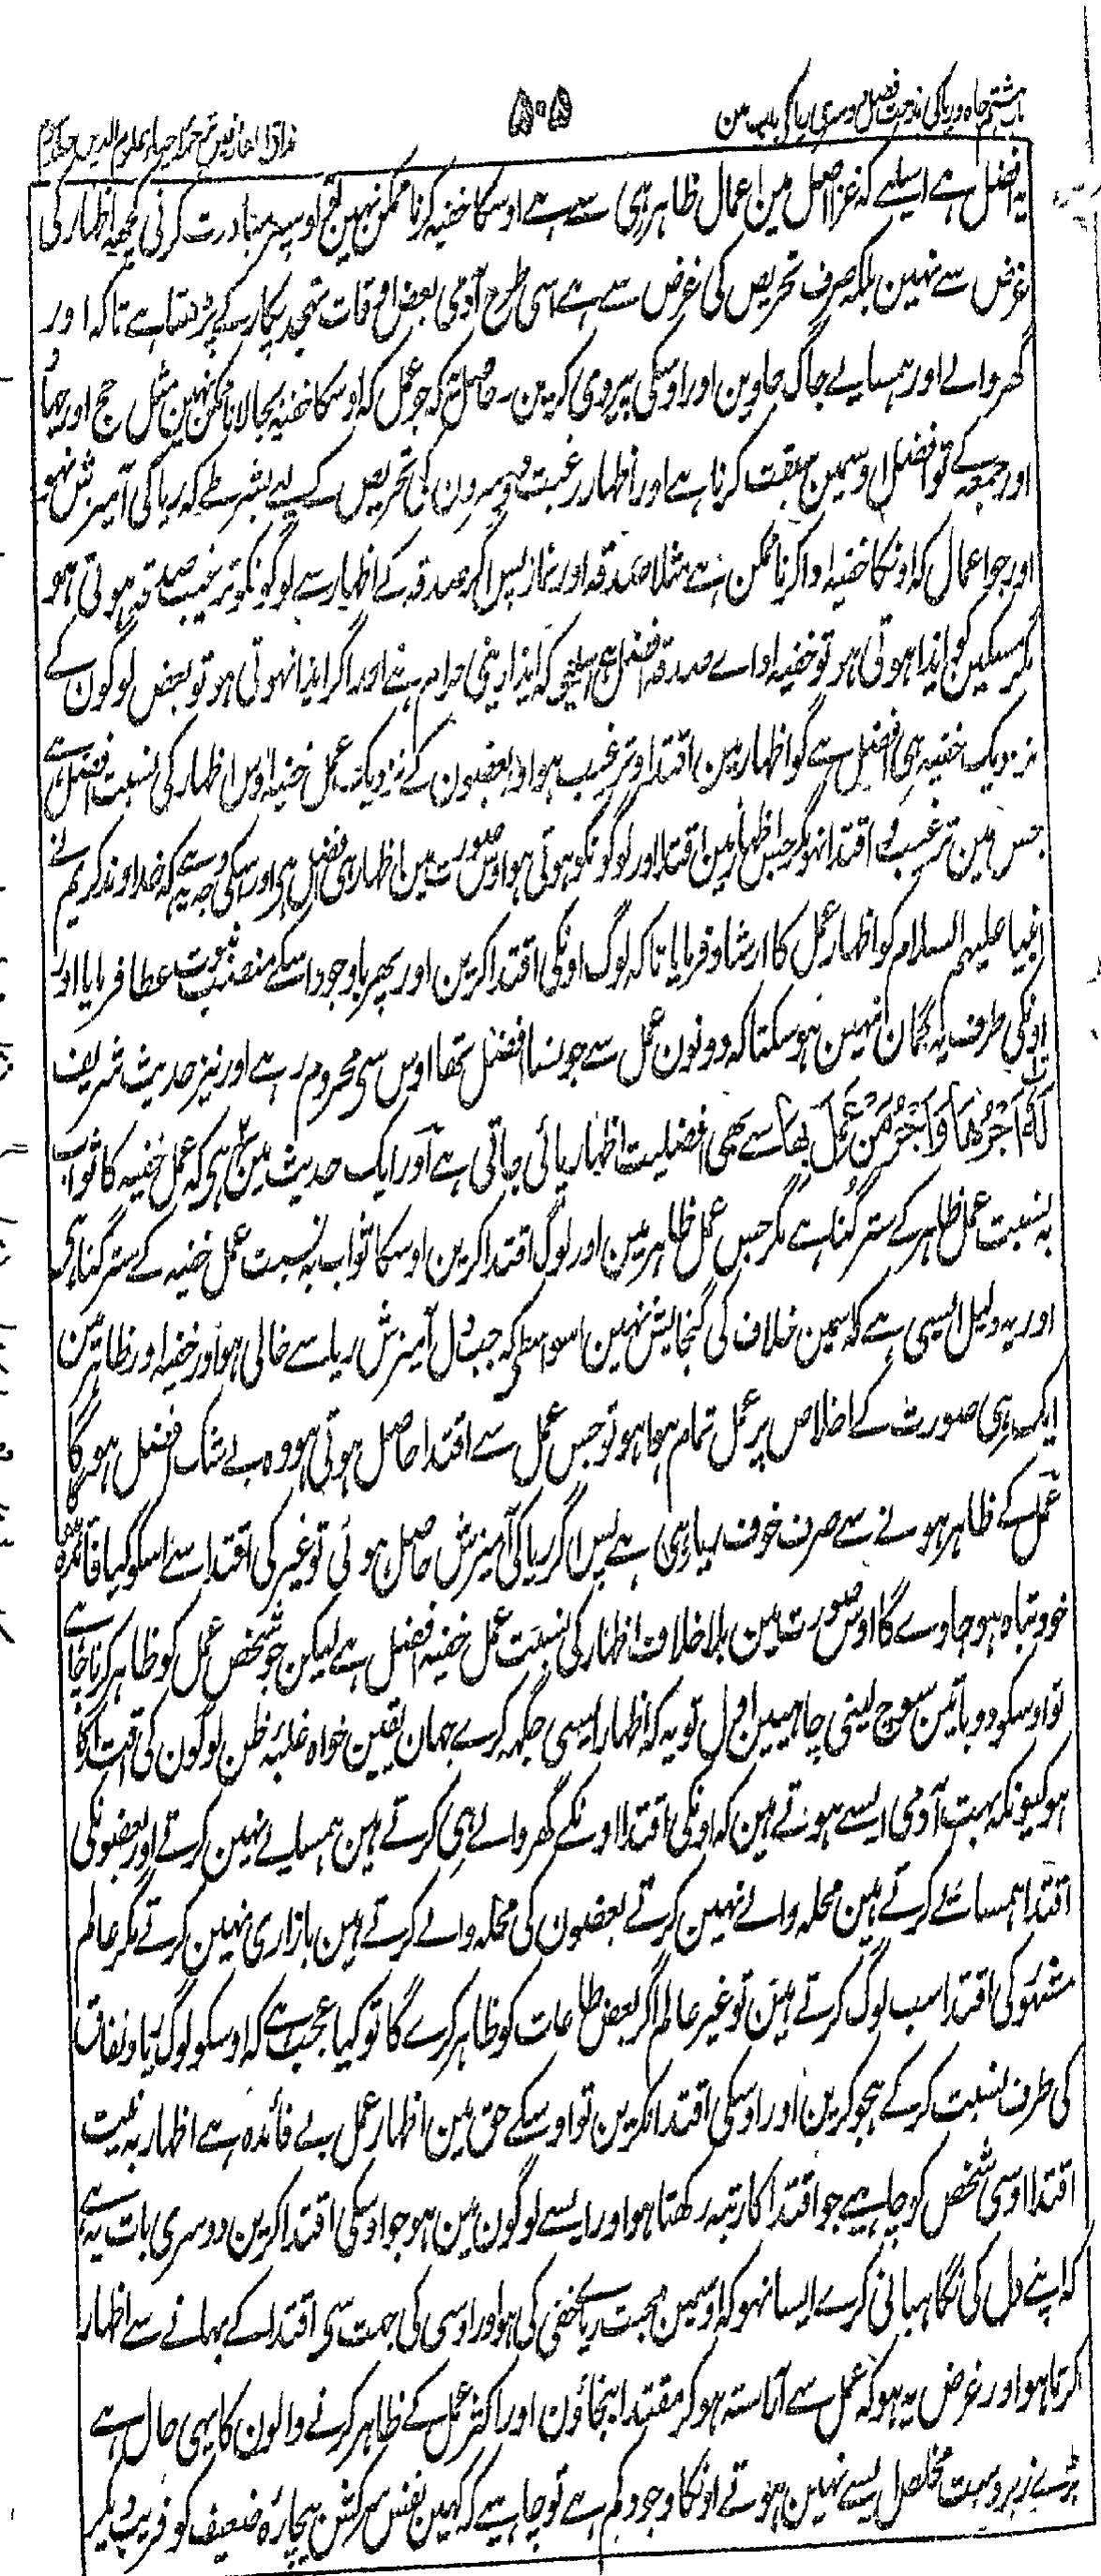 باب ہشتم جاہ و ریا کی مذمت فصل دوسری ریا کے باب مین
۵۰۵
مذاق العارفین ترجمہ احیاء علوم الدین جلد سوم
یہ افضل ہے اسلیے کہ غزا اصل مین اعمال ظاہر ہی سے ہے اوسکا خفیہ کرنا ممکن نہین تو اوسپر مبادرت کرنی کچھ اظہار کی
غرض سے نہین بلکہ صرف تحریص کی غرض سے ہے اسی طرح آدمی بعض اوقات تہجد پکار کے پڑھتا ہے تاکہ اور
گھر والے اور ہمسایے جاگ جاوین اور اوسکی پیروی کرین۔ حاصل یہ کہ جو عمل کہ اوسکا خفیہ بجا لانا ممکن نہین مثل حج اور جہاد
اور جمعہ کے تو افضل اوسمین سبقت کرنا ہے اور اظہار رغبت دوسرون کی تحریص کے لیے بشرطے کہ ریا کی آمیزش نہو
اور جو اعمال کہ اونکا خفیہ ادا کرنا ممکن ہے مثلا صدقہ اور نماز پس اگر صدقہ کے اظہار سے لوگونکو ترغیب صدقہ ہوتی ہو
مگر مسکین کو ایذا ہوتی ہو تو خفیہ ادا ے صدقہ افضل ہی اسلیے کہ ایذا دینی حرام ہے اور اگر ایذا نہوتی ہو تو بعض لوگون کے
نزدیک خفیہ ہی افضل ہے گو اظہار مین اقتدا و ترغیب ہو اور بعضون کے نزدیک عمل خفیہ اوس اظہار کی نسبت افضل ہے
جس مین ترغیب و اقتدا نہو مگر جس اظہار مین اقتدا اور لوگونکو ہوتی ہو اوس صورت مین اظہار ہی افضل ہی اور اسکی وجہ یہ ہے کہ خداوند کریم نے
انبیا علیہم السلام کو اظہار عمل کا ارشاد فرمایا تاکہ لوگ اونکی اقتدا کرین اور پھر باوجود اسکے منصب نبوت عطا فرمایا اور
اونکی طرف یہ گمان نہین ہو سکتا کہ دونون عمل سے جونسا افضل تھا اوس سی محروم رہے اور نیز حدیث شریف
لَهٗ اَجْرُهَا وَاَجْرُ مَنْ عَمِلَ بِهَا سے بھی افضلیت اظہار پائی جاتی ہے اور ایک حدیث مین ہی کہ عمل خفیہ کا ثواب
بہ نسبت عمل ظاہر کے ستر گنا ہے مگر جس عمل ظاہر مین اور لوگ اقتدا کرین اوسکا ثواب بہ نسبت عمل خفیہ کے ستر گنا ہی
اور یہ دلیل ایسی ہے کہ اسمین خلاف کی گنجایش نہین اسواسطے کہ جب دل آمیزش ریا سے خالی ہو اور خفیہ اور ظاہر مین
ایک ہی صورت کے اخلاص پر عمل تمام ہوا ہو تو جس عمل سے اقتدا حاصل ہوتی ہو وہ بے شک افضل ہوگا
عمل کے ظاہر ہونے سے صرف خوف ریا ہی ہے پس اگر ریا کی آمیزش حاصل ہوئی تو غیر کی اقتدا سے اسکو کیا فائدہ
خود تباہ ہو جاوے گا اوس صورت مین بلا خلاف اظہار کی نسبت عمل خفیہ افضل ہے لیکن جو شخص عمل کو ظاہر کرنا چاہے
تو اوسکو دو باتین سوچ لینی چاہییں اول تو یہ کہ اظہار ایسی جگہہ کرے جہان یقین خواہ غلبہ ظن لوگون کی اقتدا کا
ہو کیونکہ بہت آدمی ایسے ہوتے ہین کہ اونکی اقتدا اونکے گھر والے ہی کرتے ہین ہمسایے نہین کرتے اور بعضونکی
اقتدا ہمسائے کرتے ہین محلہ والے نہین کرتے بعضون کی محلہ والے کرتے ہین بازاری نہین کرتے مگر عالم
مشہور کی اقتدا سب لوگ کرتے ہین تو غیر عالم اگر بعض طاعات کو ظاہر کرے گا تو کیا عجب ہے کہ اوسکو لوگ ریا و نفاق
کی طرف نسبت کر کے ہجو کرین اور اوسکی اقتدا نکرین تو اوسکے حق مین اظہار عمل بے فائدہ ہے اظہار بہ نیت
اقتدا اوسی شخص کو چاہیے جو اقتدا کا رتبہ رکھتا ہو اور ایسے لوگون مین ہو جو اوسکی اقتدا کرین دوسری بات یہ ہے
کہ اپنے دل کی نگاہبانی کرے ایسا نہو کہ اوسمین محبت ریاے خفی کی ہو اور اوسی کی جہت سی اقتدا کے بہانے سے اظہار
کرتا ہو اور غرض یہ ہو کہ عمل سے آراستہ ہو کر مقتدا بنجاؤن اور اکثر عمل کے ظاہر کرنے والون کا یہی حال ہے
بڑے زبردست مخلص ایسے نہین ہوتے اونکا وجود کم ہے تو چاہیے کہ کہین نفس سرکش بیچارہ ضعیف کو فریب دیکر